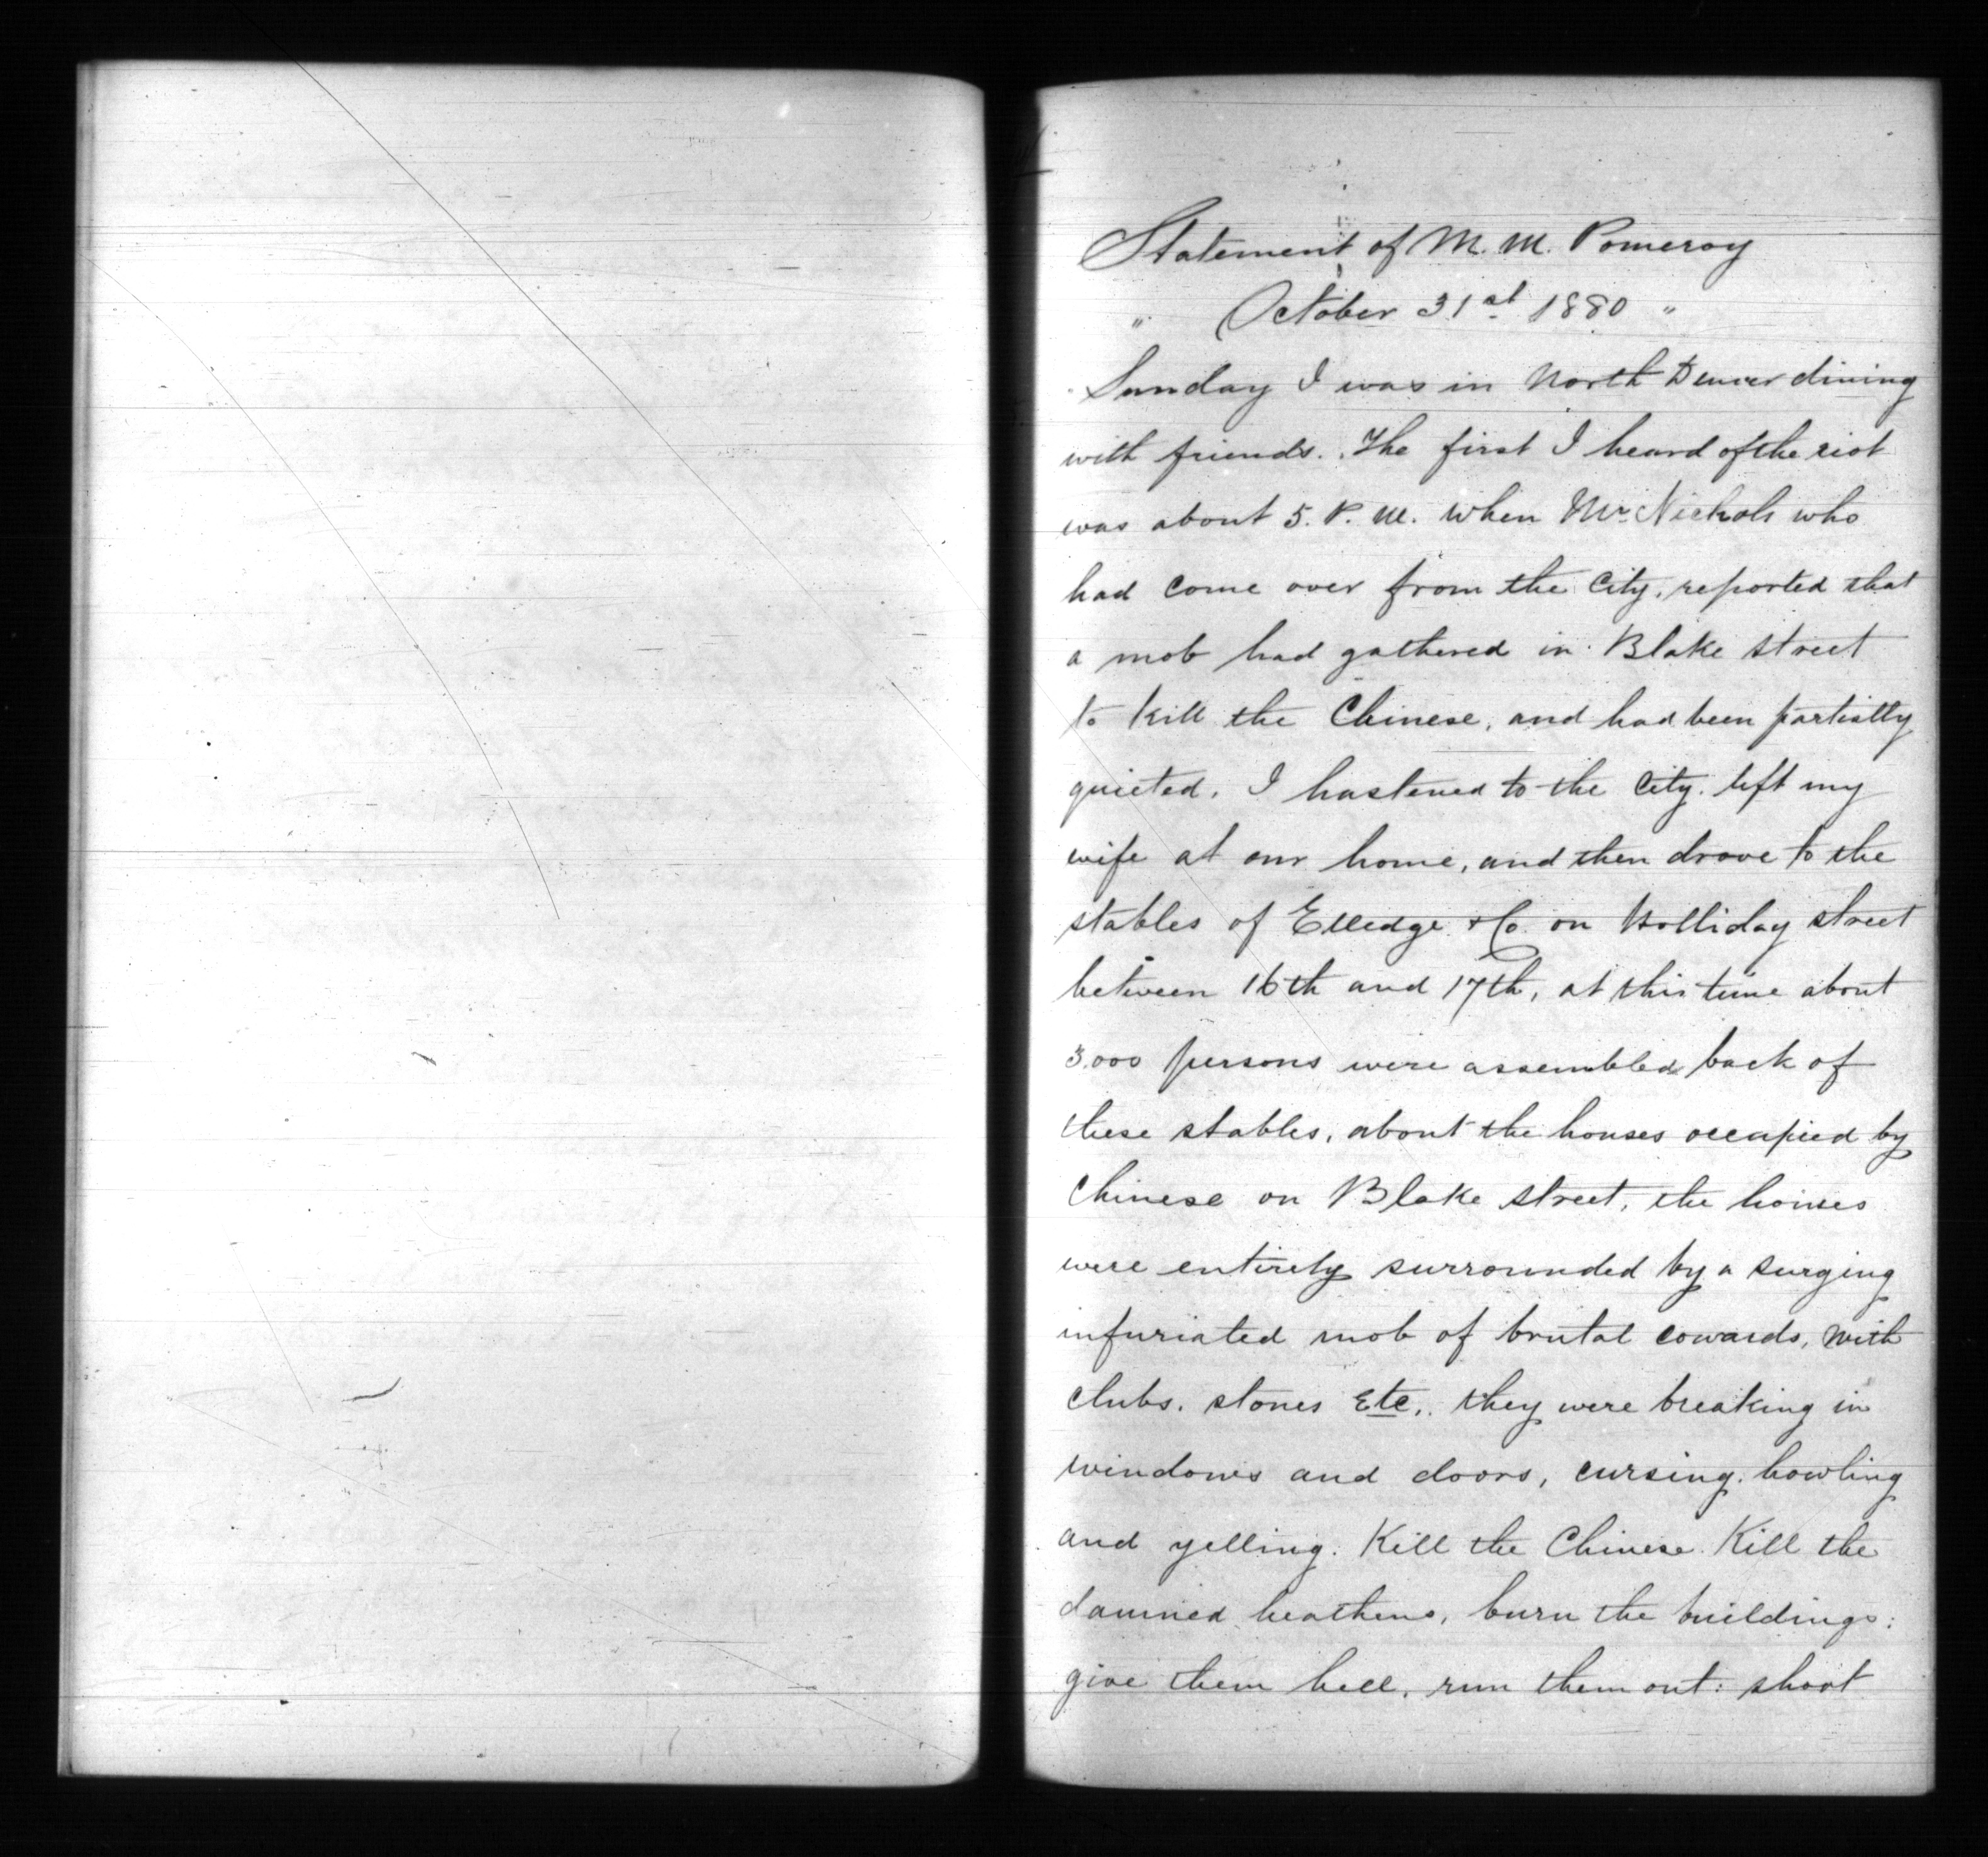 Statement of M. M. Pomeroy
" October 31st 1880 "
Sunday I was in North Denver dining
with friends. The first I heard of the riot
was about 5. P. M. when Mr Nichols who
had come over from the City, reported that
a mob had gathered in Blake street
to kill the Chinese, and had been partially
quieted. I hastened to the City. left my
wife at our home, and then drove to the
stables of Elledge & Co. on Holliday street
between 16th and 17th, at this time about
3.000 persons were assembled back of
these stables, about the houses occupied by
Chinese on Blake street, the houses
were entirely surrounded by a surging
infuriated mob of brutal cowards, with
clubs. stones Etc,. they were breaking in
windows and doors, cursing. howling
and yelling. Kill the Chinese. Kill the
damned heathens, burn the buildings:
give them hell, run them out: shoot